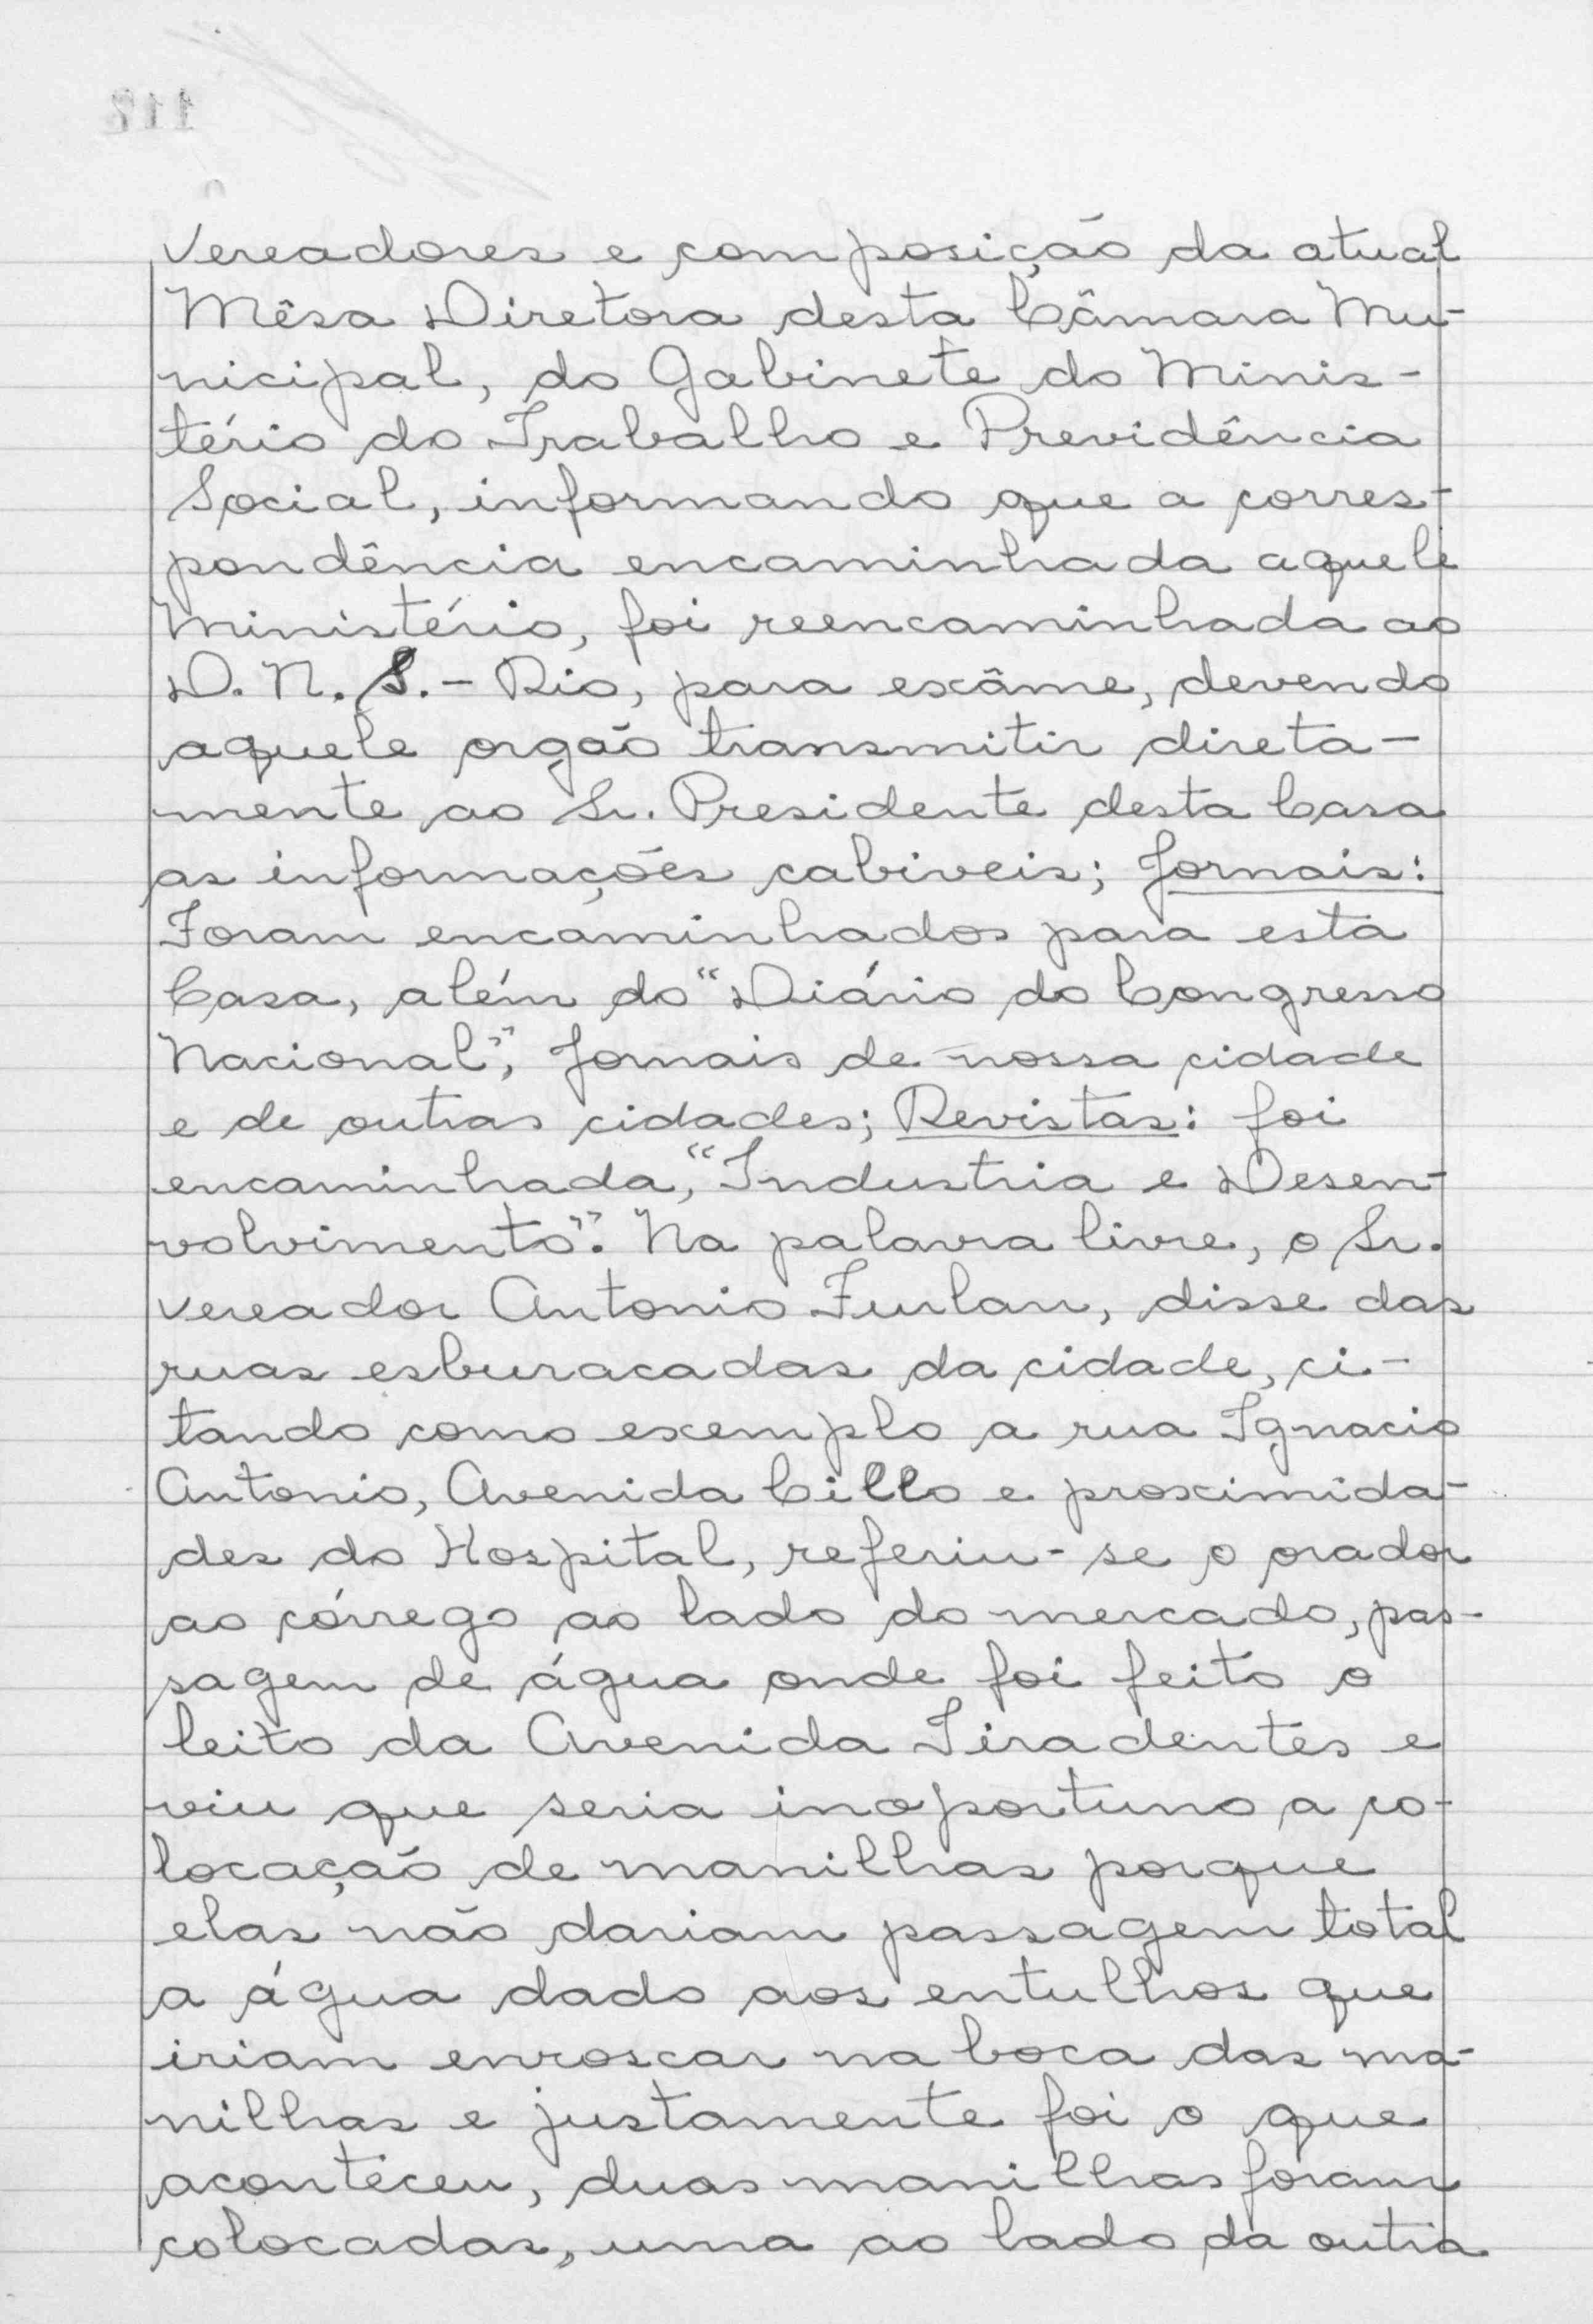 vereadores e composição da atual
Mêsa Diretora desta Câmara Mu-
nicipal, do Gabinete do Minis-
tério do Trabalho e Previdência
Social, informando que a corres-
pondência encaminhada aquele
Ministério, foi reencaminhada ao
D. N. S. - Rio, para exâme, devendo
aquele orgão transmitir direta-
mente ao Sr. Presidente desta Casa
as informações cabiveis; Jornais:
Foram encaminhados para esta
Casa, além do "Diário do Congresso
Nacional", Jornais de nossa cidade
e de outras cidades; Revistas: foi
encaminhada, "Industria e Desen-
volvimento". Na palavra livre, o Sr.
vereador Antonio Furlan, disse das
ruas esburacadas da cidade, ci-
tando como exemplo a rua Ignacio
Antonio, Avenida Cillo e proximida-
des do Hospital, referiu-se o orador
ao córrego ao lado do mercado, pas-
sagem de água onde foi feito o
leito da Avenida Tiradentes e
viu que seria inoportuno a co-
locação de manilhas porque
elas não dariam passagem total
a água dado aos entulhos que
iriam enroscar na boca das ma-
nilhas e justamente foi o que
aconteceu, duas manilhas foram
colocadas, uma ao lado da outra